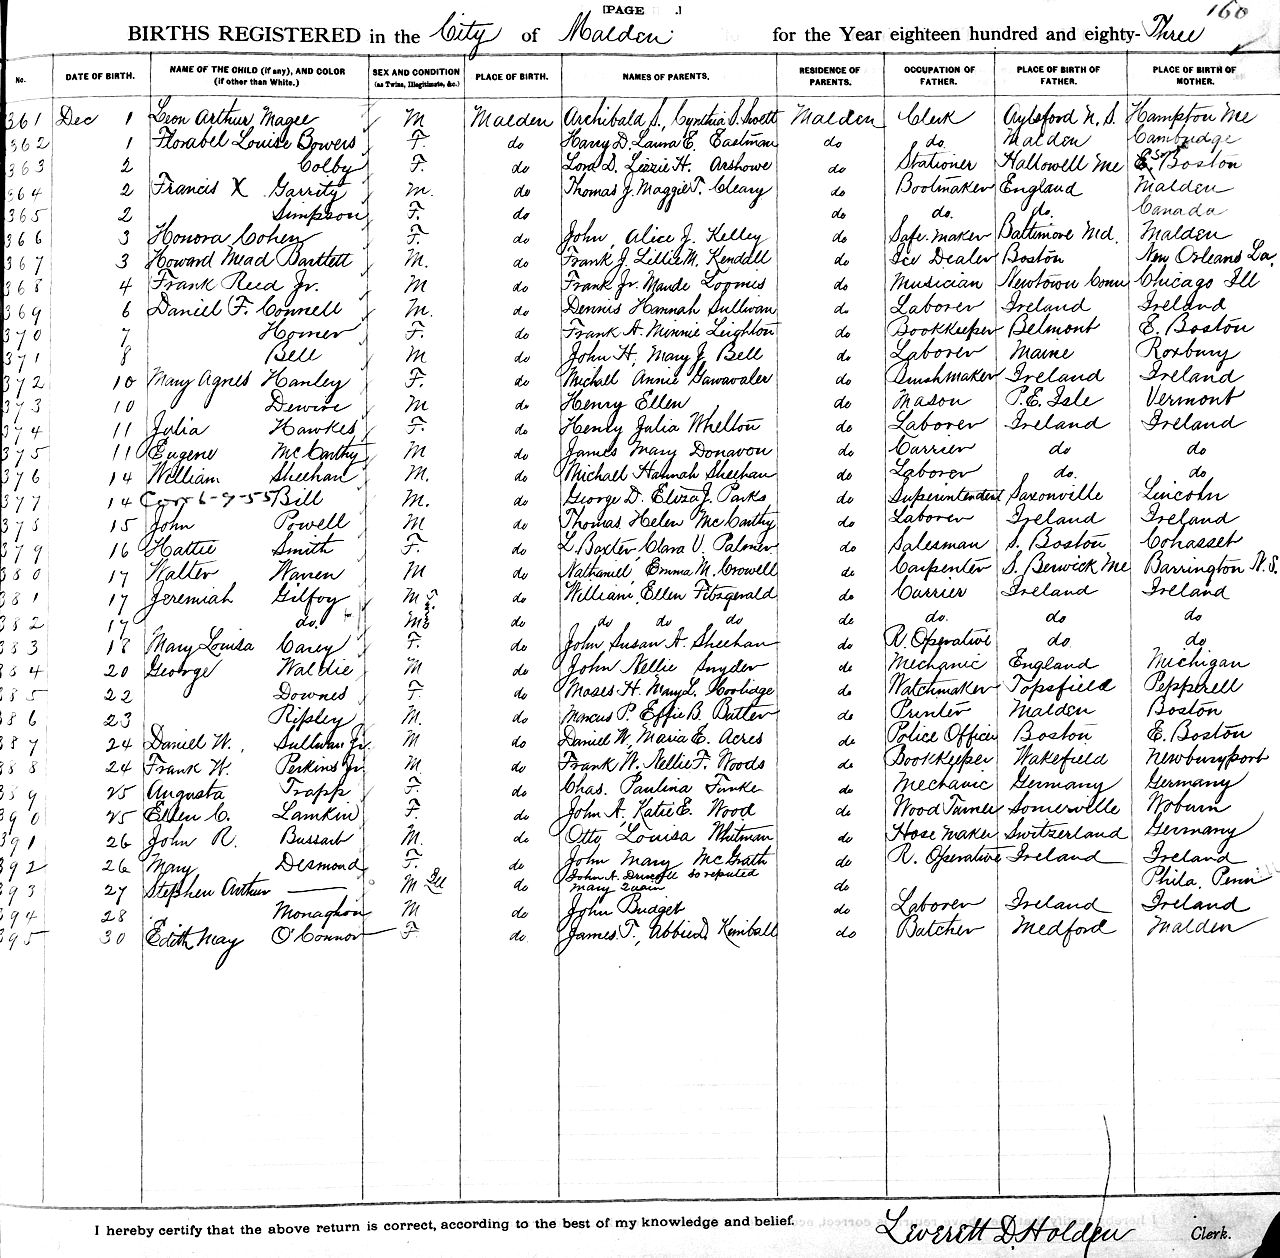 [PAGE .]
160
BIRTHS REGISTERED in the City of Malden for the Year eighteen hundred and eighty-Three
No. DATE OF BIRTH. NAME OF THE CHILD (if any), AND COLOR (if other than White.) SEX AND CONDITION (as Twins, Illegitimate, &c.) PLACE OF BIRTH. NAMES OF PARENTS. RESIDENCE OF PARENTS. OCCUPATION OF FATHER. PLACE OF BIRTH OF FATHER. PLACE OF BIRTH OF MOTHER.
361 Dec 1 Leon Arthur Magee M Malden Archibald S., Cynthia S. Swett Malden Clerk Aylsford N.S. Hampton Me
362 1 Florabel Louise Bowers F. do Harry D. Laura E. Eastman do do. Malden Cambridge
363 2 Colby F. do Lord D. Lizzie H. Arshowe do Stationer Hallowell Me E. Boston
364 2 Francis X Garrity M. do Thomas J. Maggie T. Cleary do Bootmaker England Malden
365 2 Simpson F. do do do. do. Canada
366 3 Honora Cohen F. do John, Alice J. Kelley do Safe maker Baltimore Md. Malden
367 3 Howard Mead Bartlett M. do Frank J. Lillie M. Kendall do Ice Dealer Boston New Orleans La.
368 4 Frank Reed Jr. M do Frank Jr. Maude Loomis do Musician Newtown Conn Chicago Ill
369 6 Daniel F. Connell M. do Dennis Hannah Sullivan do Laborer Ireland Ireland
370 7 Horner F. do Frank A. Minnie Leighton do Bookkeeper Belmont E. Boston
371 8 Bell M do John H. Mary J. Bell do Laborer Maine Roxbury
372 10 Mary Agnes Hanley F. do Michael Annie do Brushmaker Ireland Ireland
373 10 Dewire M do Henry Ellen do Mason P.E. Isle Vermont
374 11 Julia Hawkes F. do Henry Julia Whelton do Laborer Ireland Ireland
375 11 Eugene McCarthy M do James Mary Donavon do Carrier do do
376 14 William Sheehan M. do Michael Hannah Sheehan do Laborer do. do
377 14 Corr 6-7-55 Bill M. do George D. Eliza J. Parks do Superintendent Saxonville Lincoln
378 15 John Powell M do Thomas Helen McCarthy do Laborer Ireland Ireland
379 16 Hattie Smith F. do L. Baxter Clara V. Palmer do Salesman S. Boston Cohasset
380 17 Walter Warren M do Nathaniel Emma M. Crowell do Carpenter S. Berwick Me Barrington N.S.
381 17 Jeremiah Gilfoy M do William Ellen Fitzgerald do Carrier Ireland Ireland
382 17 do. M do do do do do do. do do
383 18 Mary Louisa Carey F. do John Susan A. Sheehan do R. Operative do do
384 20 George Waldie M do John Nellie Snyder do Mechanic England Michigan
385 22 Downes F. do Moses H. Mary L. Coolidge do Watchmaker Topsfield Pepperell
386 23 Ripley M. do Marcus P. Effie B. Butler do Printer Malden Boston
387 24 Daniel W. Sullivan Jr. M do Daniel W. Maria E. Acres do Police Officer Boston E. Boston
388 24 Frank W. Perkins Jr. M do Frank W. Nellie F. Woods do Bookkeeper Wakefield Newburyport
389 25 Augusta Trapp F. do Chas. Paulina Tinke do Mechanic Germany Germany
390 25 Ellen C. Lamkin F. do John A. Katie E. Wood do Wood Turner Somerville Woburn
391 26 John R. Bussart M. do Otto Louisa Whitman do Hose maker Switzerland Germany
392 26 Mary Desmond F. do John Mary McGrath do R. Operative Ireland Ireland
393 27 Stephen Arthur —— M Ill do John A. Driscoll so reputed Mary Quain do Phila. Penn
394 28 Monaghan M do John Bridget do Laborer Ireland Ireland
395 30 Edith May O'Connor F do James T., Abbie D. Kimball do Butcher Medford Malden
I hereby certify that the above return is correct, according to the best of my knowledge and belief.
Leverett D. Holden Clerk.